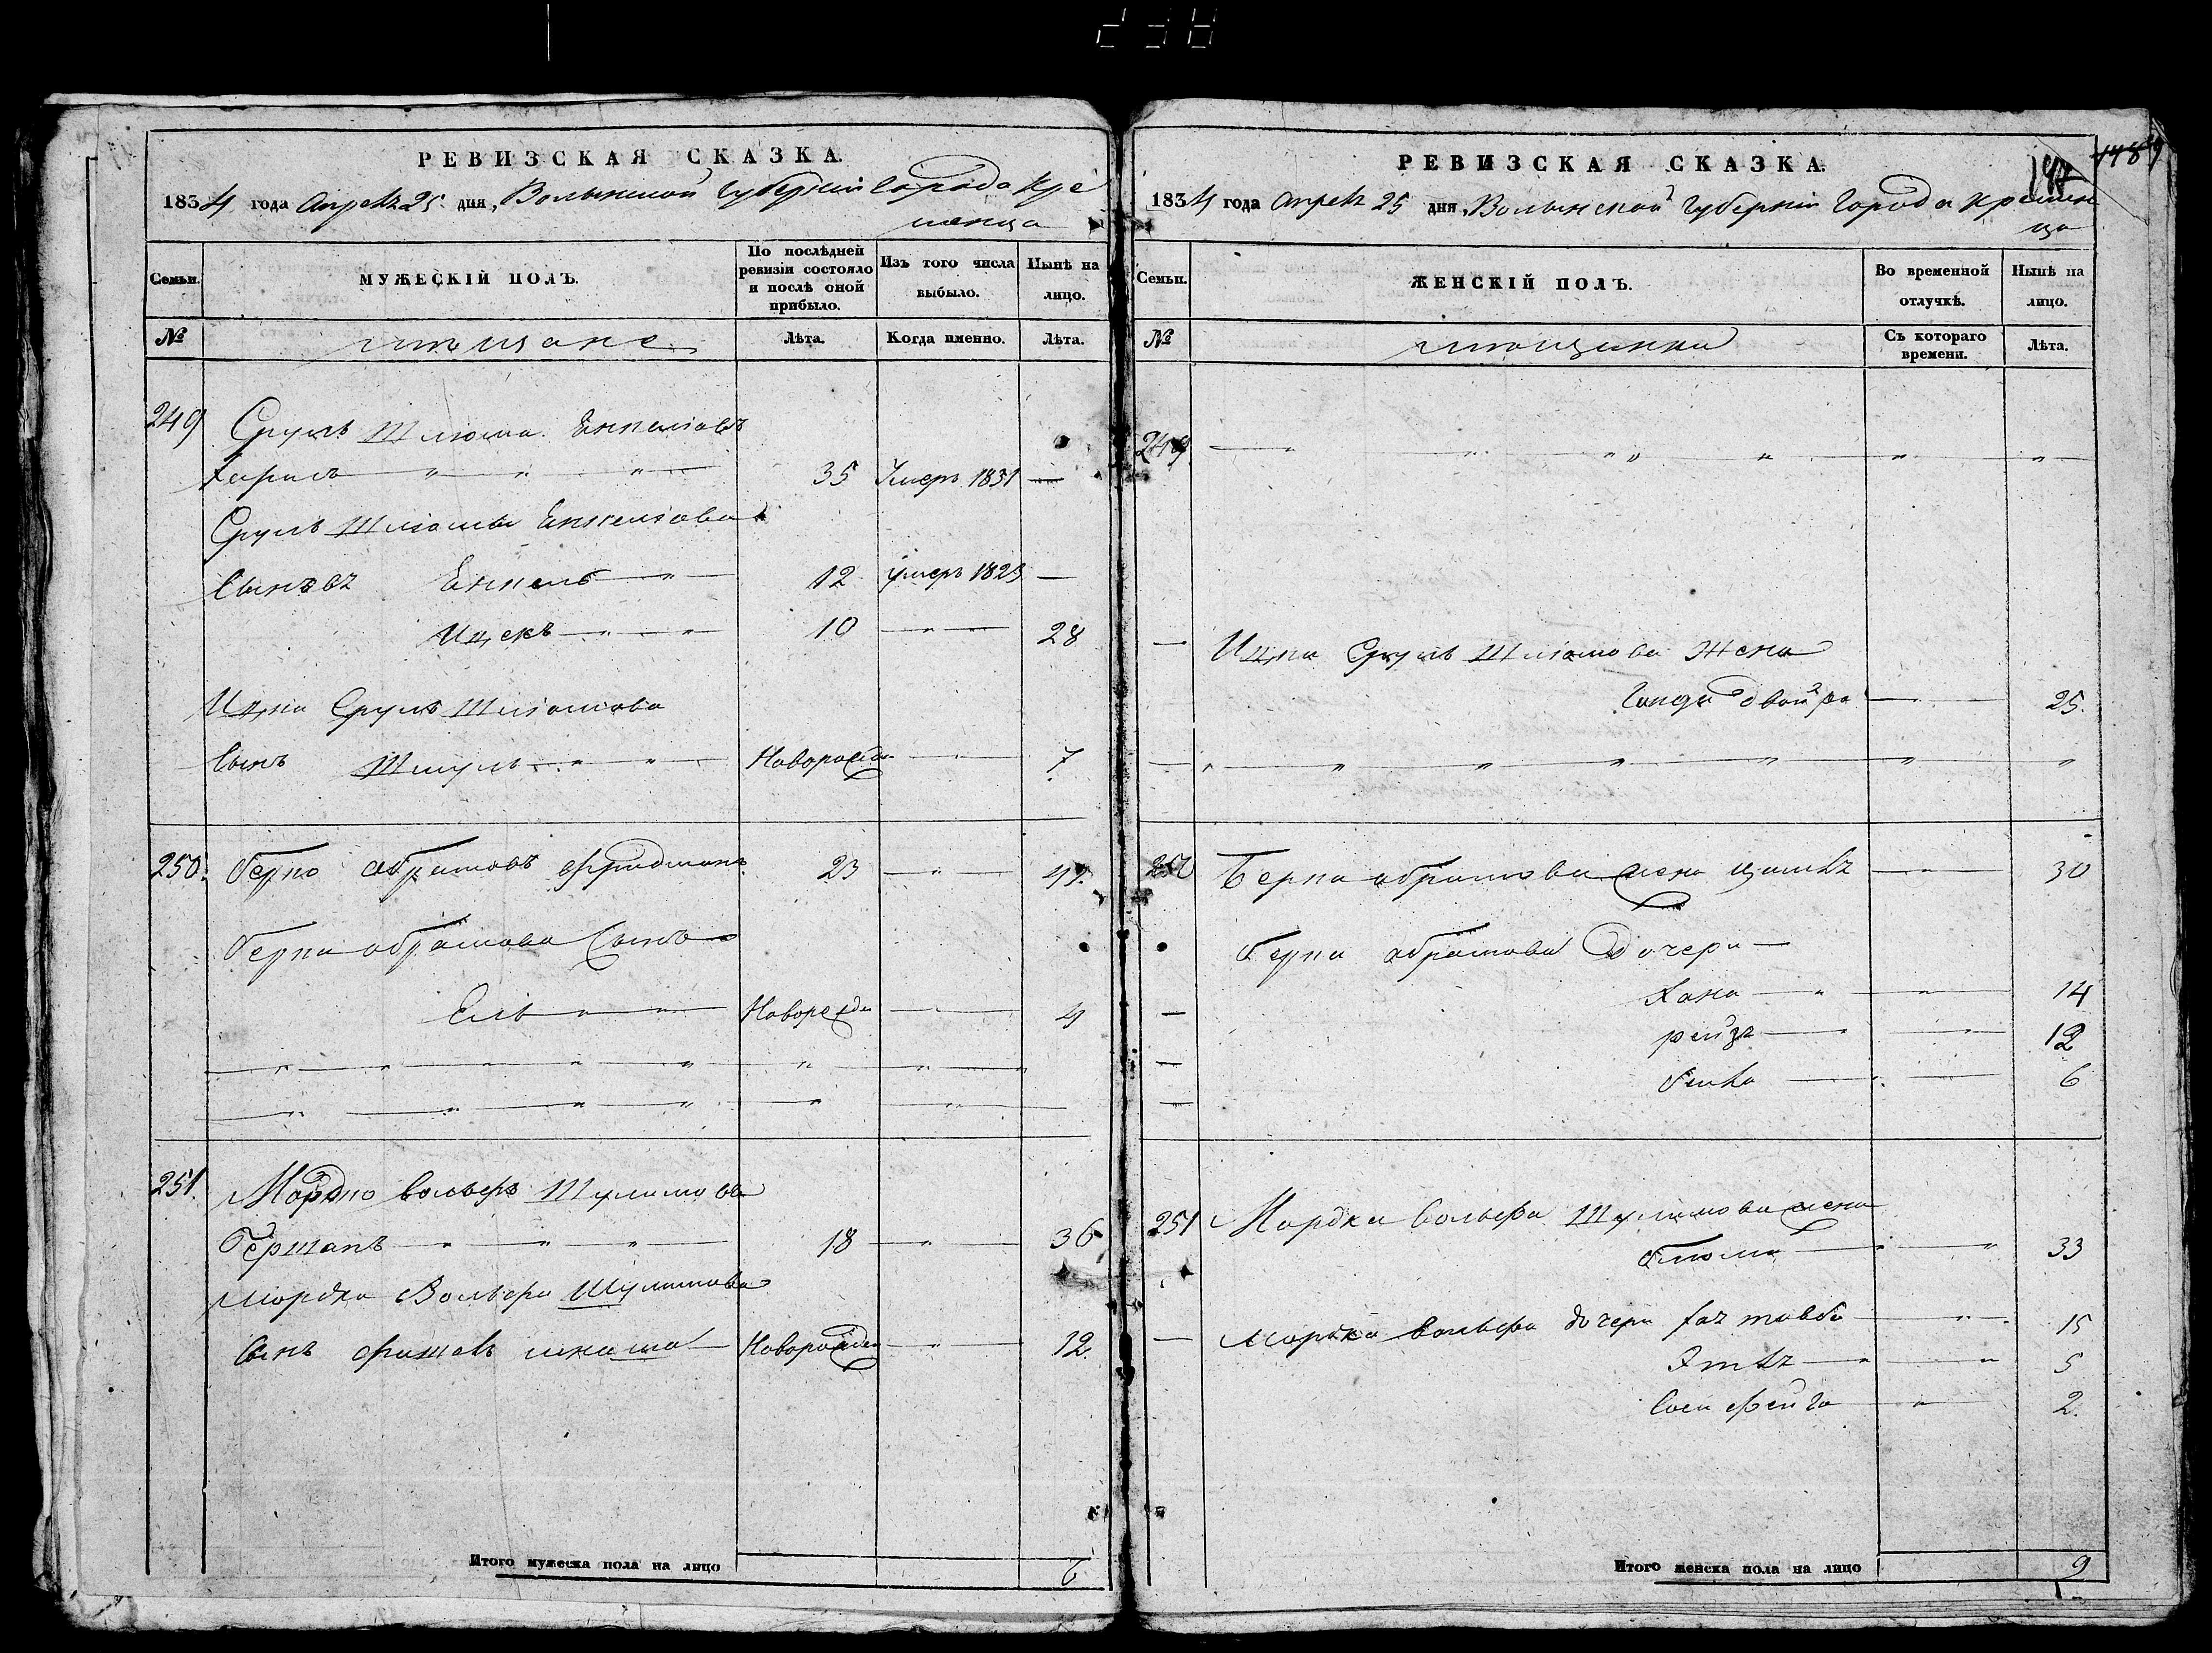 РЕВИЗСКАЯ СКАЗКА.
1834 года Апреля 25 дня, Волынской Губернии Города Кре
менца
Семьи.
МУЖЕСКІЙ ПОЛЪ.
По послѣдней ревизіи состояло и послѣ оной прибыло.
Изъ того числа выбыло.
Нынѣ на лицо.
№
мещане
Лѣта.
Когда именно.
Лѣта.
249 Сруль Шлиома Енкелiовъ
35 Умеръ 1831 —
Сруль Шлiомы Енкелiова
Сыновъ Енкель — 12 умеръ 1823 —
Ицекъ — 10 — 28
Ицка Сруль Шлiомова
Сынъ Шмуль — Новорожден — 7
250. Берко Абрамовъ Фридманъ 23 — 41.
Берка Абрамова Сынъ
Ель — Новорожден — 4
251. Мордко Вольфъ Шулимовъ
Германъ — 18 — 36
Мордка Вольфа Шулимова
Сынъ — Новорожден — 12.
Итого мужеска пола на лицо 6
РЕВИЗСКАЯ СКАЗКА.
148
1834 года Апреля 25 дня, Волынской Губерніи Города Кремен
ца
Семьи.
ЖЕНСКІЙ ПОЛЪ.
Во временной отлучкѣ.
Нынѣ на лицо.
№
мещанки
Съ котораго времени.
Лѣта.
249
— Ицка Сруль Шлiомова Жена
Двойра — 25.
250 Берка Абрамова жена — 30
Берка Абрамова Дочери —
Хана — 14
рейзя — 12
— 6
251 Мордка Вольфа Шулимова жена
— 33
— Мордка Вольфа дочери — 15
— 5
фейга — 2.
Итого женска пола на лицо 9